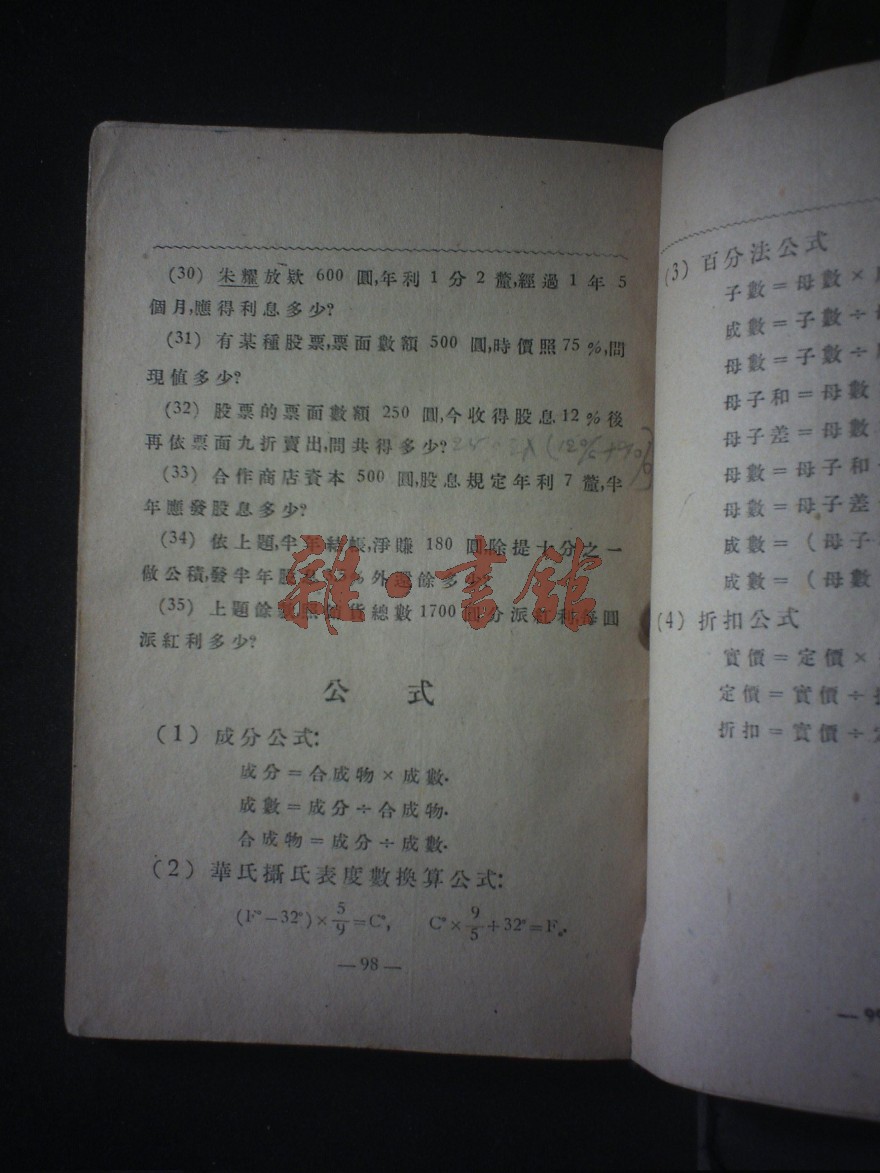 (30) 朱耀放欵 600 圓,年利 1 分 2 釐,經過 1 年 5
個月,應得利息多少?
(31) 有某種股票,票面數額 500 圓,時價照 75 %,問
現値多少?
(32) 股票的票面數額 250 圓,今收得股息 12 % 後
再依票面九折賣出,問共得多少?
(33) 合作商店資本 500 圓,股息規定年利 7 釐,半
年應發股息多少?
(34) 依上題,半年結帳,淨賺 180 圓,除提十分之一
做公積,發半年股 外還餘多少?
(35) 上題餘 照 貨總數 1700 圓分派紅利,每圓
派紅利多少?
雜·書館
公 式
(1) 成分公式:
成分=合成物×成數.
成數=成分÷合成物.
合成物=成分÷成數.
(2) 華氏攝氏表度數換算公式:
(F°−32°)×5/9=C°, C°×9/5+32°=F°.
—98—
(3) 百分法公式
子數=母數×
成數=子數÷
母數=子數÷
母子和=母數
母子差=母數
母數=母子和
母數=母子差
成數=(母子
成數=(母數
(4) 折扣公式
實價=定價×
定價=實價÷
折扣=實價÷
—99